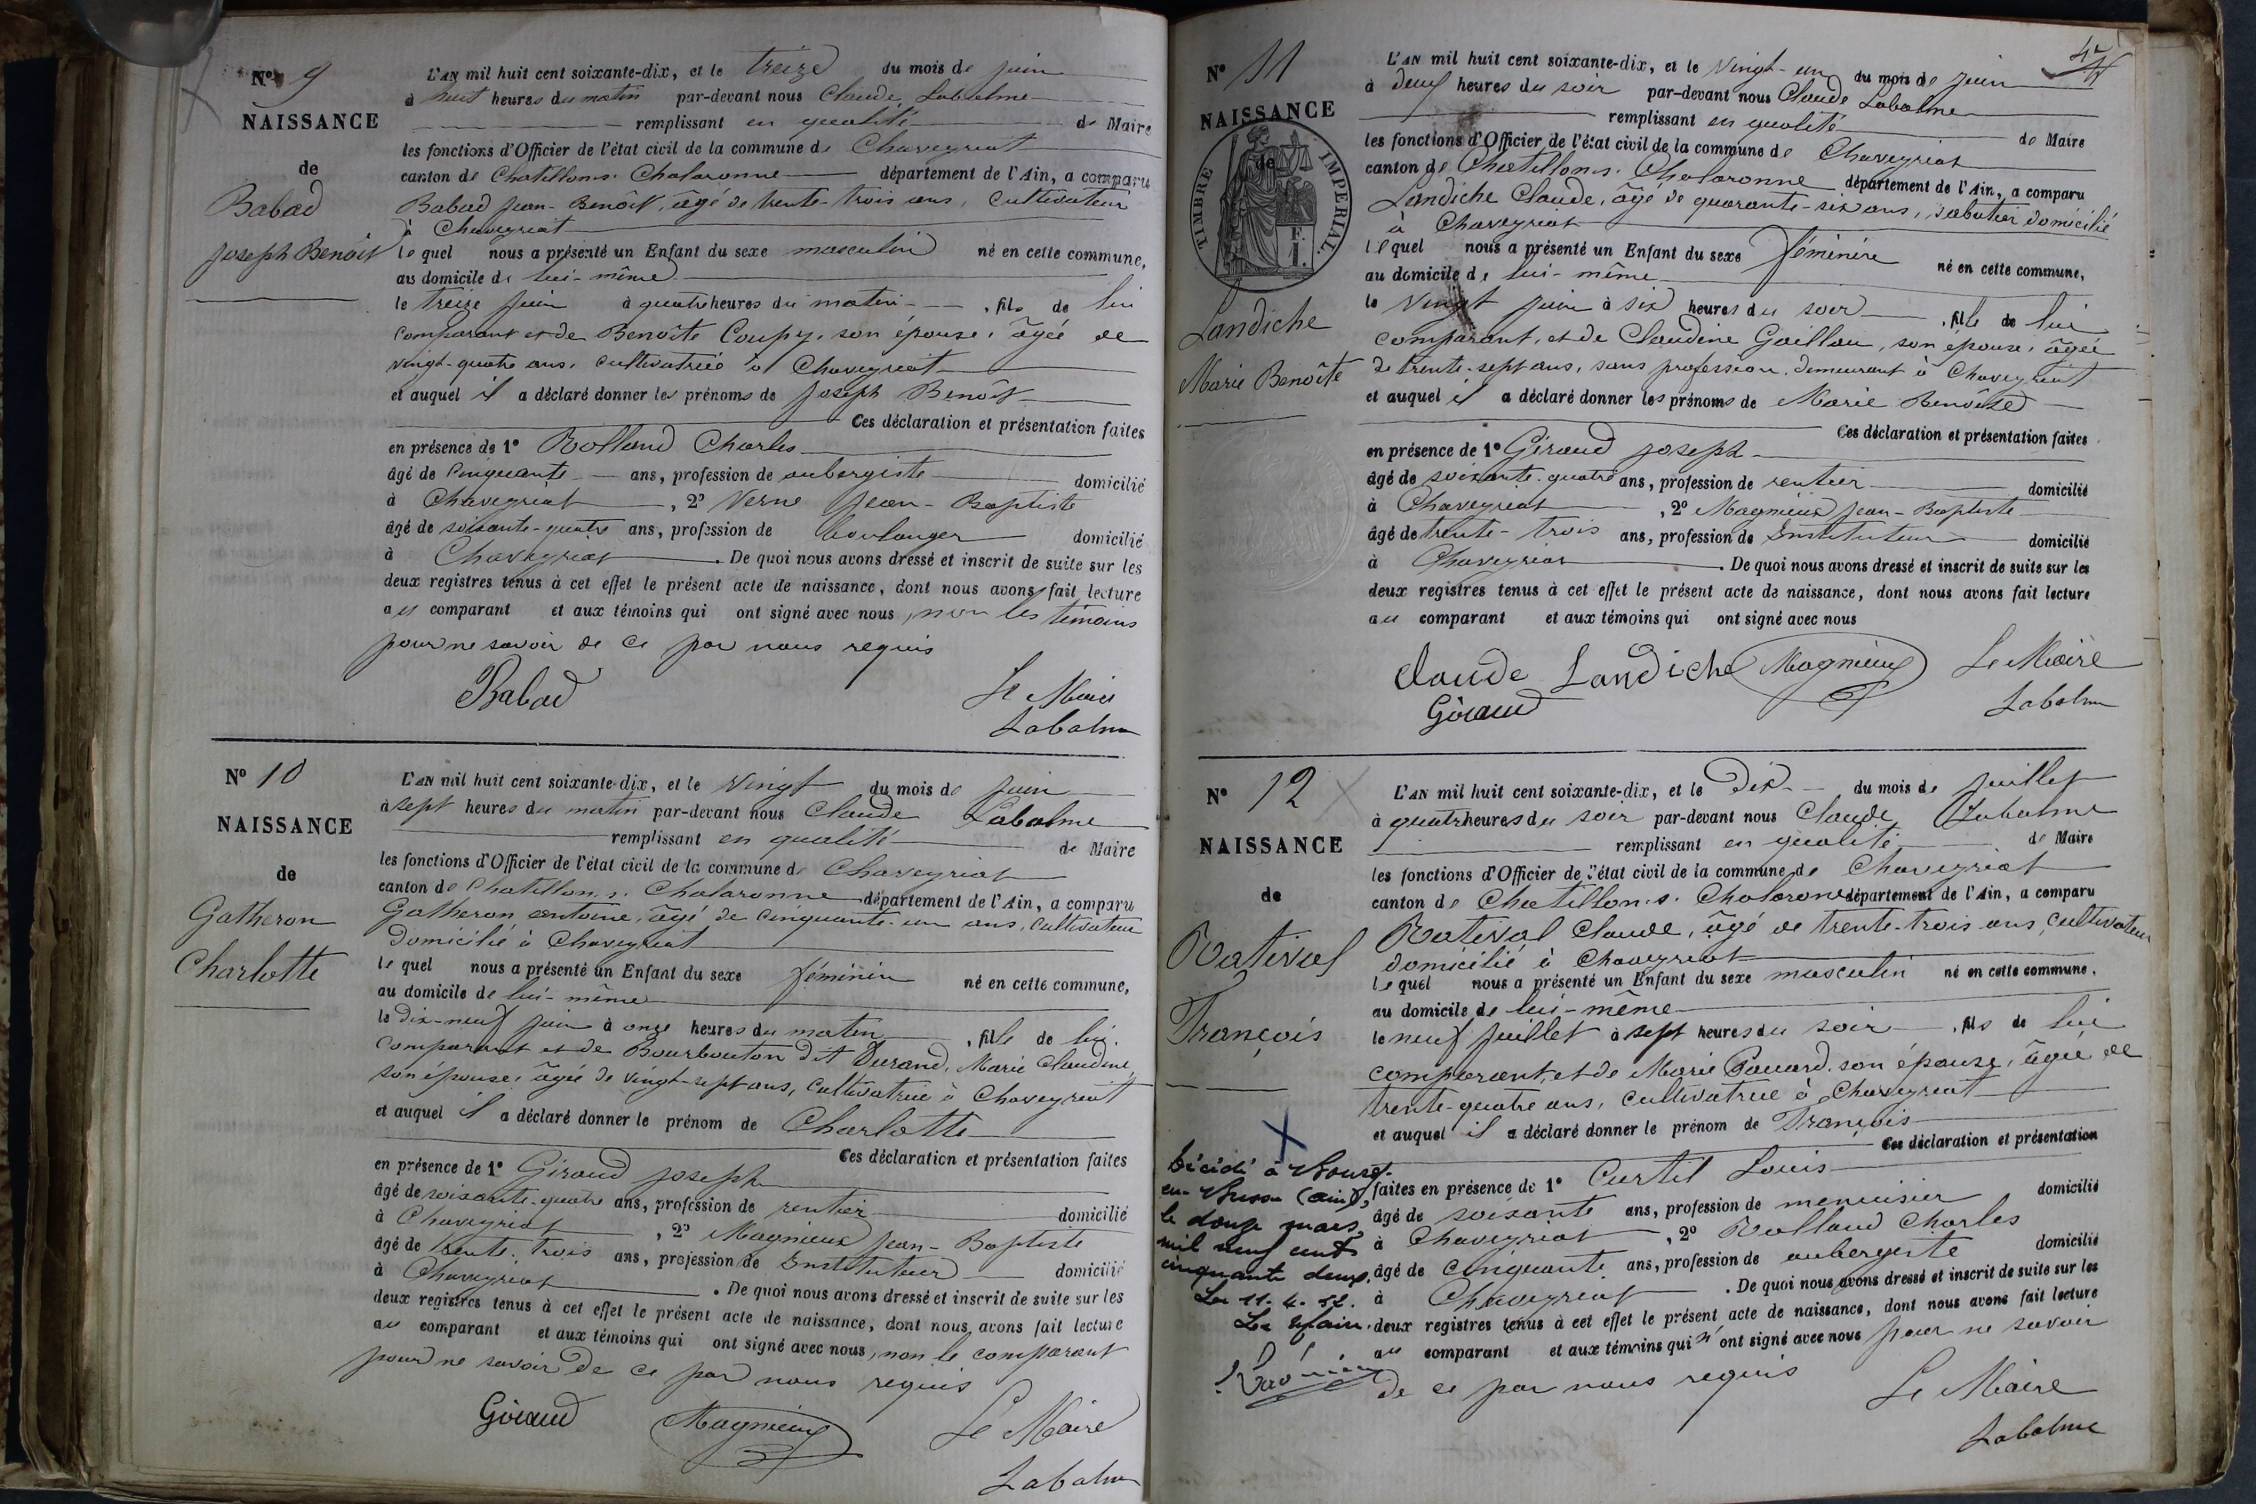 N° 9
NAISSANCE
de
Babad
Joseph Benoit
L'AN mil huit cent soixante-dix, et le treize du mois de juin
à huit heures du matin par-devant nous Claude Labalme
remplissant en qualité de Maire
les fonctions d'Officier de l'état civil de la commune de Chaveyriat
canton de Chatillon s. Chalaronne département de l'Ain, a comparu
Babad Jean-Benoît, âgé de trente-trois ans, cultivateur
à Chaveyriat
lequel nous a présenté un Enfant du sexe masculin né en cette commune,
au domicile de lui-même
le treize juin à quatre heures du matin, fils de lui
comparant et de Benoîte Coupy, son épouse, âgée de
vingt-quatre ans, cultivatrice à Chaveyriat
et auquel il a déclaré donner les prénoms de Joseph Benoît
Ces déclaration et présentation faites
en présence de 1° Rolland Charles
âgé de cinquante ans, profession de aubergiste domicilié
à Chaveyriat, 2° Verne Jean-Baptiste
âgé de soixante-quatre ans, profession de boulanger domicilié
à Chaveyriat. De quoi nous avons dressé et inscrit de suite sur les
deux registres tenus à cet effet le présent acte de naissance, dont nous avons fait lecture
au comparant et aux témoins qui ont signé avec nous, non les témoins
pour ne savoir de ce par nous requis
Babad
Le Maire
Labalme
N° 10
NAISSANCE
de
Gatheron
Charlotte
L'AN mil huit cent soixante-dix, et le vingt du mois de juin
à sept heures du matin par-devant nous Claude Labalme
remplissant en qualité de Maire
les fonctions d'Officier de l'état civil de la commune de Chaveyriat
canton de Chatillon s. Chalaronne département de l'Ain, a comparu
Gatheron antoine, âgé de cinquante-un ans, cultivateur
domicilié à Chaveyriat
lequel nous a présenté un Enfant du sexe féminin né en cette commune,
au domicile de lui-même
le dix-neuf juin à onze heures du matin, fille de lui
comparant et de Bourbouton dit Durand, Marie Claudine,
son épouse, âgée de vingt-sept ans, cultivatrice à Chaveyriat
et auquel il a déclaré donner le prénom de Charlotte
Ces déclaration et présentation faites
en présence de 1° Giraud Joseph
âgé de soixante-quatre ans, profession de rentier domicilié
à Chaveyriat, 2° Magnieux Jean-Baptiste
âgé de trente-trois ans, profession de Instituteur domicilié
à Chaveyriat. De quoi nous avons dressé et inscrit de suite sur les
deux registres tenus à cet effet le présent acte de naissance, dont nous avons fait lecture
au comparant et aux témoins qui ont signé avec nous, non le comparant
pour ne savoir de ce par nous requis
Giraud Magnieux Le Maire
Labalme
N° 11
NAISSANCE
de
TIMBRE IMPERIAL
Landiche
Marie Benoîte
L'AN mil huit cent soixante-dix, et le vingt-un du mois de juin
à deux heures du soir par-devant nous Claude Labalme
remplissant en qualité de Maire
les fonctions d'Officier de l'état civil de la commune de Chaveyriat
canton de Chatillon s. Chalaronne département de l'Ain, a comparu
Landiche Claude, âgé de quarante-six ans, sabotier domicilié
à Chaveyriat
lequel nous a présenté un Enfant du sexe féminin né en cette commune,
au domicile de lui-même
le vingt juin à six heures du soir, fille de lui
comparant, et de Claudine Gaillau, son épouse, âgée
de trente-sept ans, sans profession, demeurant à Chaveyriat
et auquel il a déclaré donner les prénoms de Marie Benoîte
Ces déclaration et présentation faites
en présence de 1° Giraud Joseph
âgé de soixante-quatre ans, profession de rentier domicilié
à Chaveyriat, 2° Magnieux Jean-Baptiste
âgé de trente-trois ans, profession de Instituteur domicilié
à Chaveyriat. De quoi nous avons dressé et inscrit de suite sur les
deux registres tenus à cet effet le présent acte de naissance, dont nous avons fait lecture
au comparant et aux témoins qui ont signé avec nous
Claude Landiche Magnieux Le Maire
Giraud Labalme
N° 12
NAISSANCE
de
Rativel
François
L'AN mil huit cent soixante-dix, et le Dix du mois de juillet
à quatre heures du soir par-devant nous Claude Labalme
remplissant en qualité de Maire
les fonctions d'Officier de l'état civil de la commune de Chaveyriat
canton de Chatillon s. Chalaronne département de l'Ain, a comparu
Rativel Claude, âgé de trente-trois ans, cultivateur
domicilié à Chaveyriat
lequel nous a présenté un Enfant du sexe masculin né en cette commune,
au domicile de lui-même
le neuf juillet à sept heures du soir, fils de lui
comparant, et de Marie Pauard, son épouse, âgée de
trente-quatre ans, cultivatrice à Chaveyriat
et auquel il a déclaré donner le prénom de François
Ces déclaration et présentation
faites en présence de 1° Curtil Louis
âgé de soixante ans, profession de menuisier domicilié
à Chaveyriat, 2° Rolland Charles
âgé de cinquante ans, profession de aubergiste domicilié
à Chaveyriat. De quoi nous avons dressé et inscrit de suite sur les
deux registres tenus à cet effet le présent acte de naissance, dont nous avons fait lecture
au comparant et aux témoins qui n'ont signé avec nous pour ne savoir
de ce par nous requis
Le Maire
Labalme
Décédé à Bourg-
en-Bresse (Ain),
le douze mars
mil neuf cent
cinquante deux.
Le 11.4.52.
Le Maire.